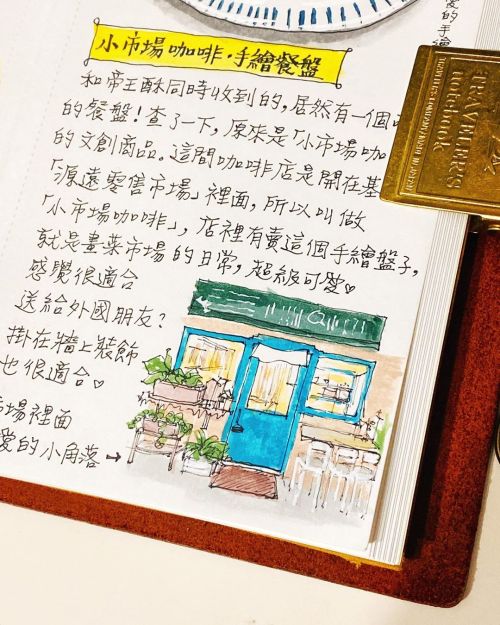 愛的手繪
小市場咖啡·手繪餐盤
和帝王酥同時收到的,居然有一個
的餐盤!查了一下,原來是「小市場咖
的文創商品。這間咖啡店是開在基
「源遠零售市場」裡面,所以叫做
「小市場咖啡」,店裡有賣這個手繪盤子,
就是畫菜市場的日常,超級可愛♡
感覺很適合
送給外國朋友?
掛在牆上裝飾
也很適合♡
市場裡面
愛的小角落→
TRAVELER'S
notebook